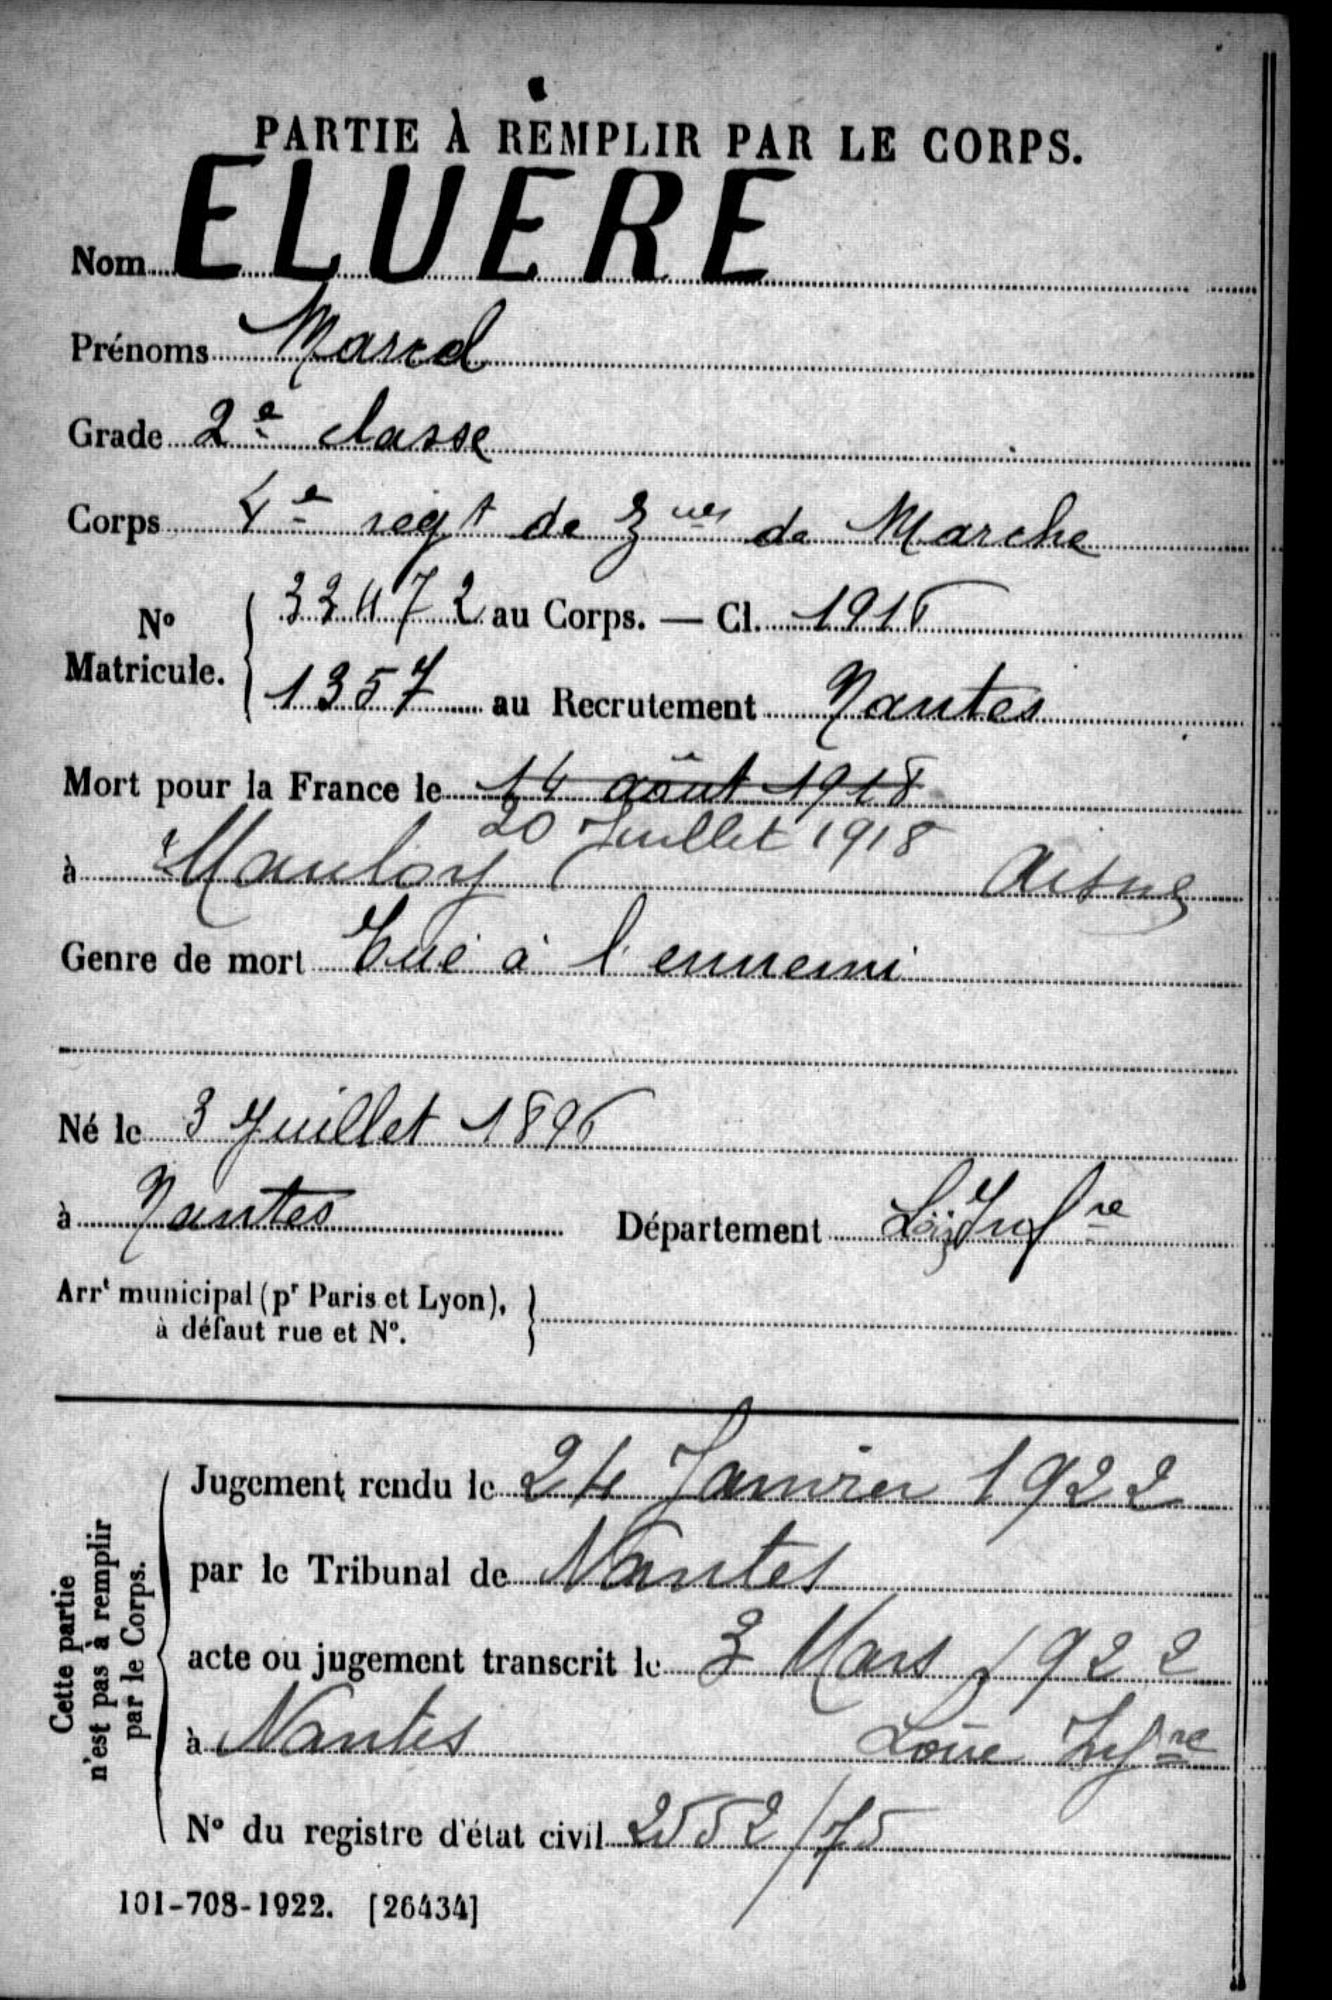 PARTIE À REMPLIR PAR LE CORPS.
Nom ELUERE
Prénoms Marcel
Grade 2e classe
Corps 4e regt de Zues de Marche
No Matricule. { 33472 au Corps. — Cl. 1916
1357 au Recrutement Nantes
Mort pour la France le 14 août 1918
20 Juillet 1918
à Mauloy Aisne
Genre de mort Tué à l'ennemi
Né le 3 Juillet 1896
à Nantes Département Loire Infre
Arrt municipal (pr Paris et Lyon), }
à défaut rue et No.
Cette partie
n'est pas à remplir
par le Corps.
Jugement rendu le 24 Janvier 1922
par le Tribunal de Nantes
acte ou jugement transcrit le 3 Mars 1922
à Nantes Loire Infre
No du registre d'état civil 2552/75
101-708-1922. [26434]